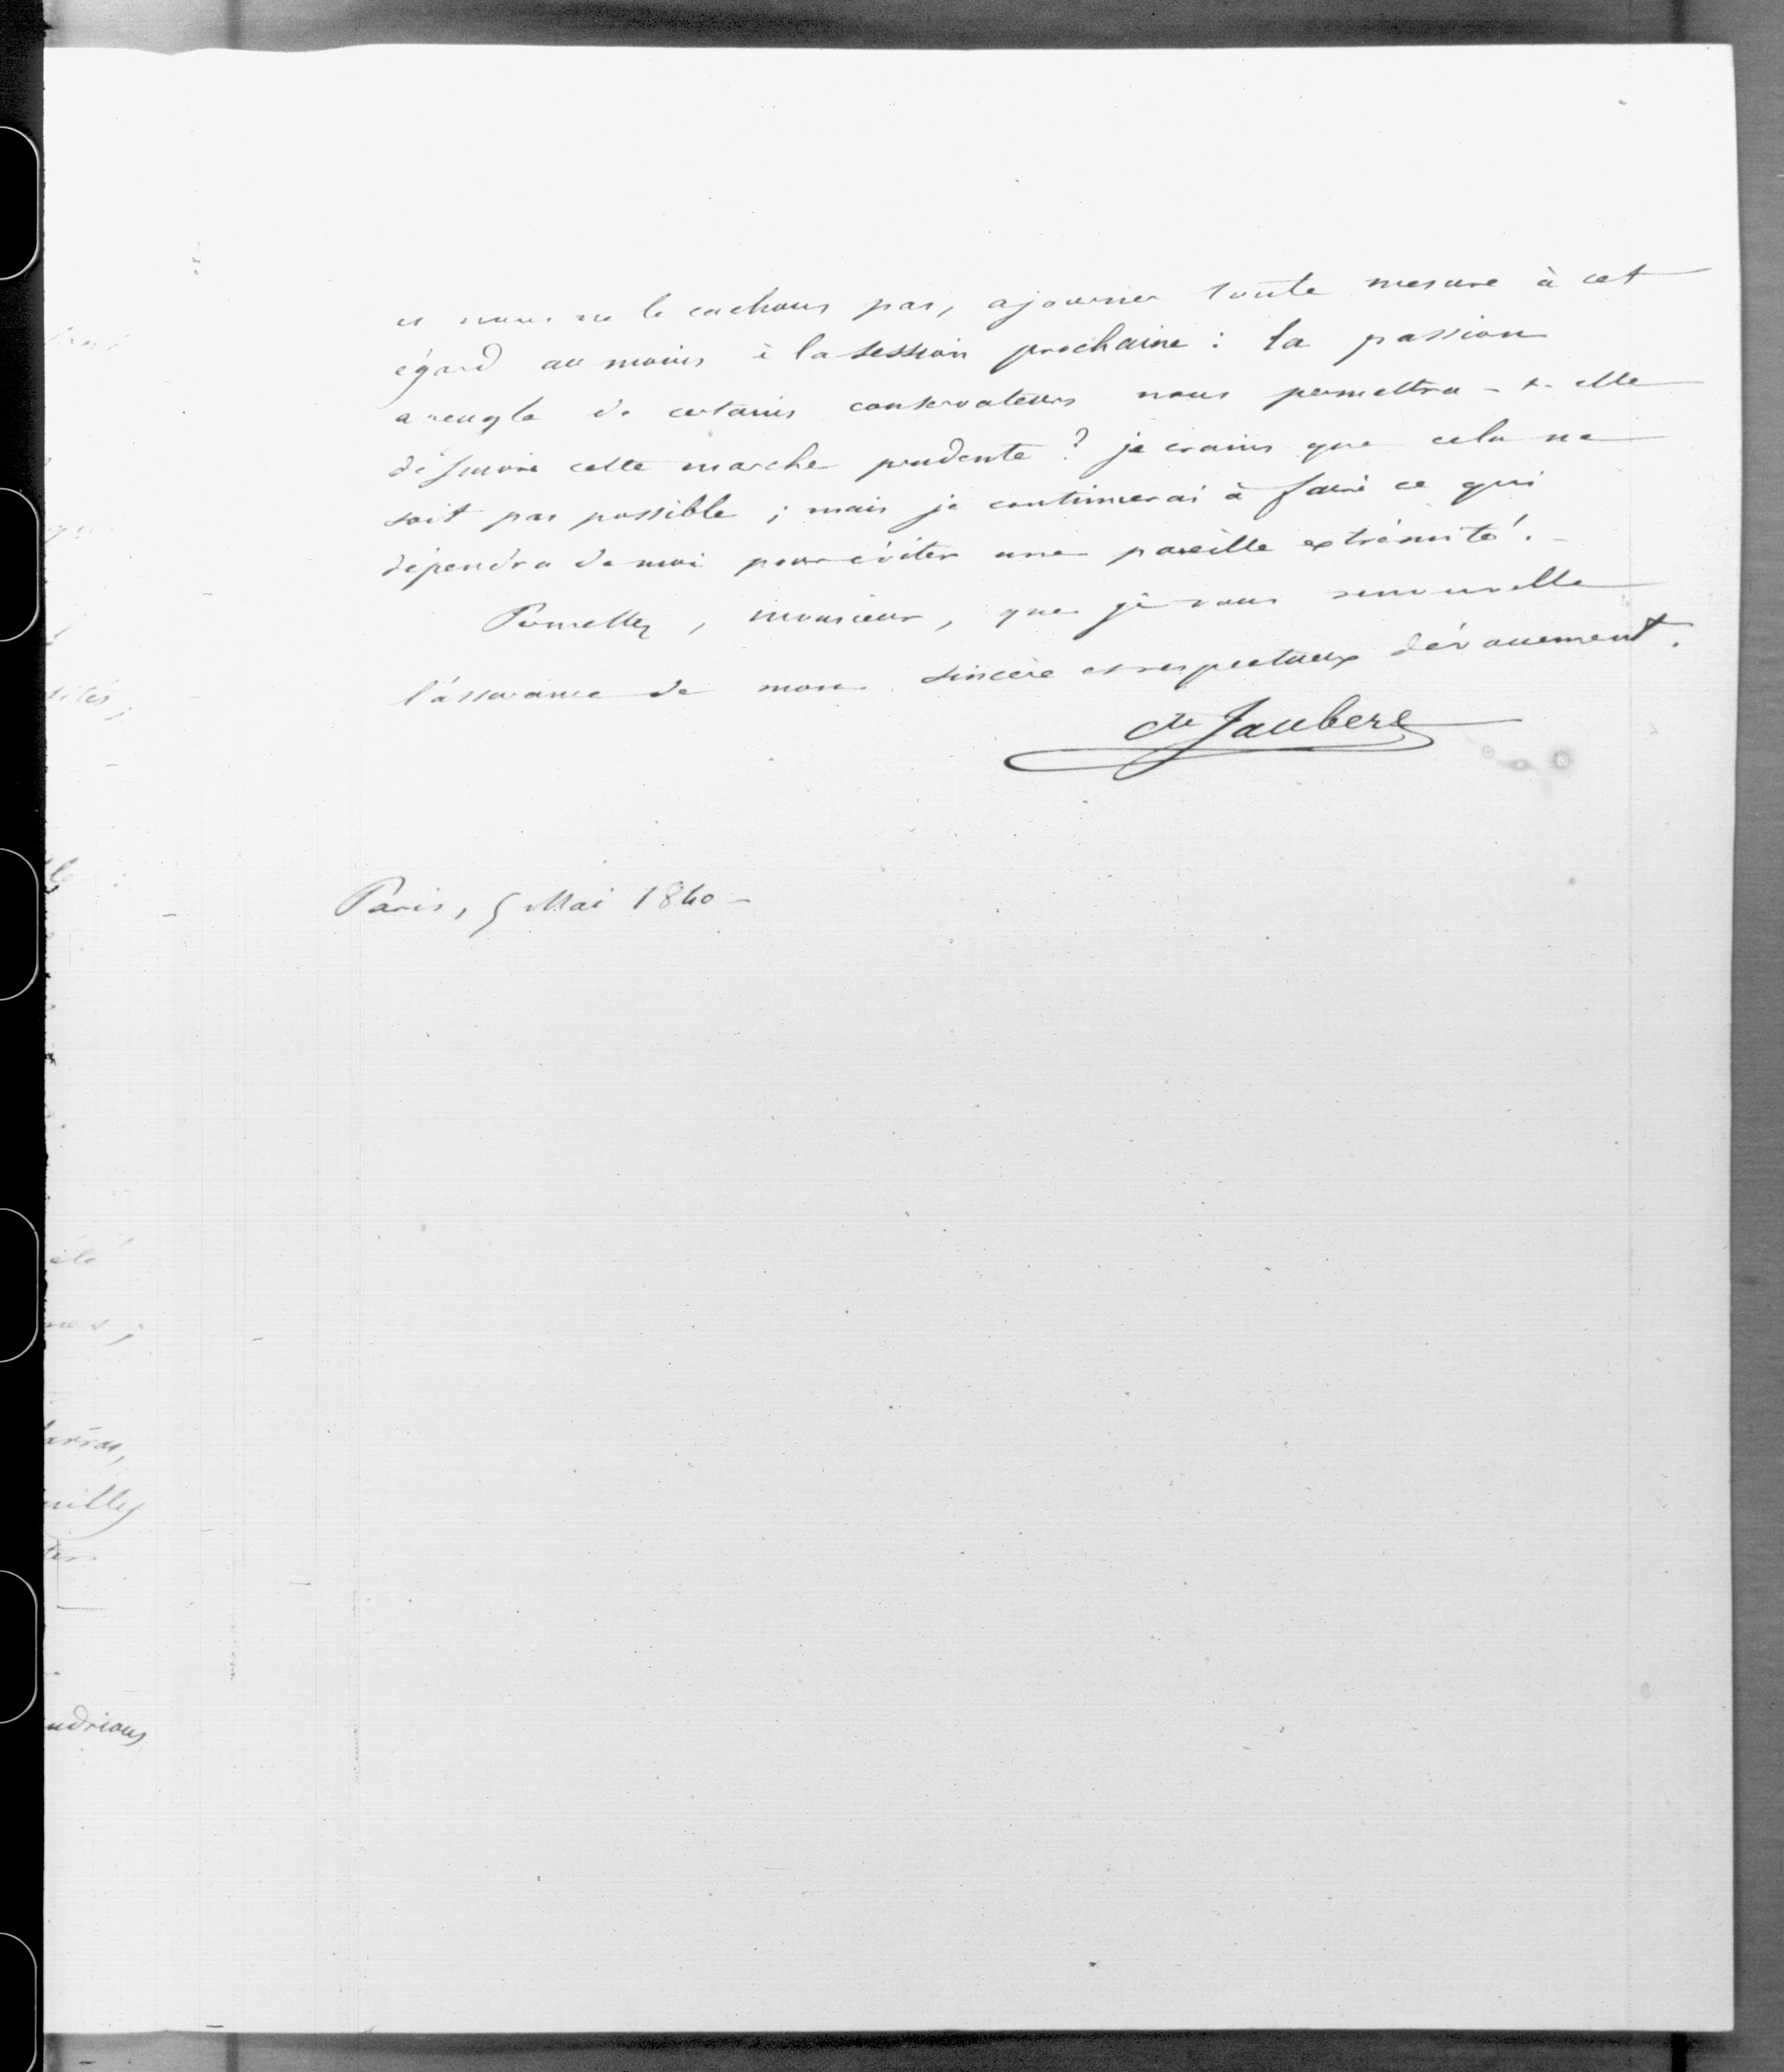 et nous ne le cachons pas, ajourner toute mesure à cet
égard au moins à la session prochaine : la passion
aveugle de certains conservateurs nous permettra-t-elle
de suivre cette marche prudente ? je crains que cela ne
soit pas possible ; mais je continuerai à faire ce qui
dépendra de moi pour éviter une pareille extrémité. -
Permettez, monsieur, que je vous renouvelle
l'assurance de mon sincère et respectueux dévouement.
Cte Jaubert
Paris, 5 Mai 1840 -